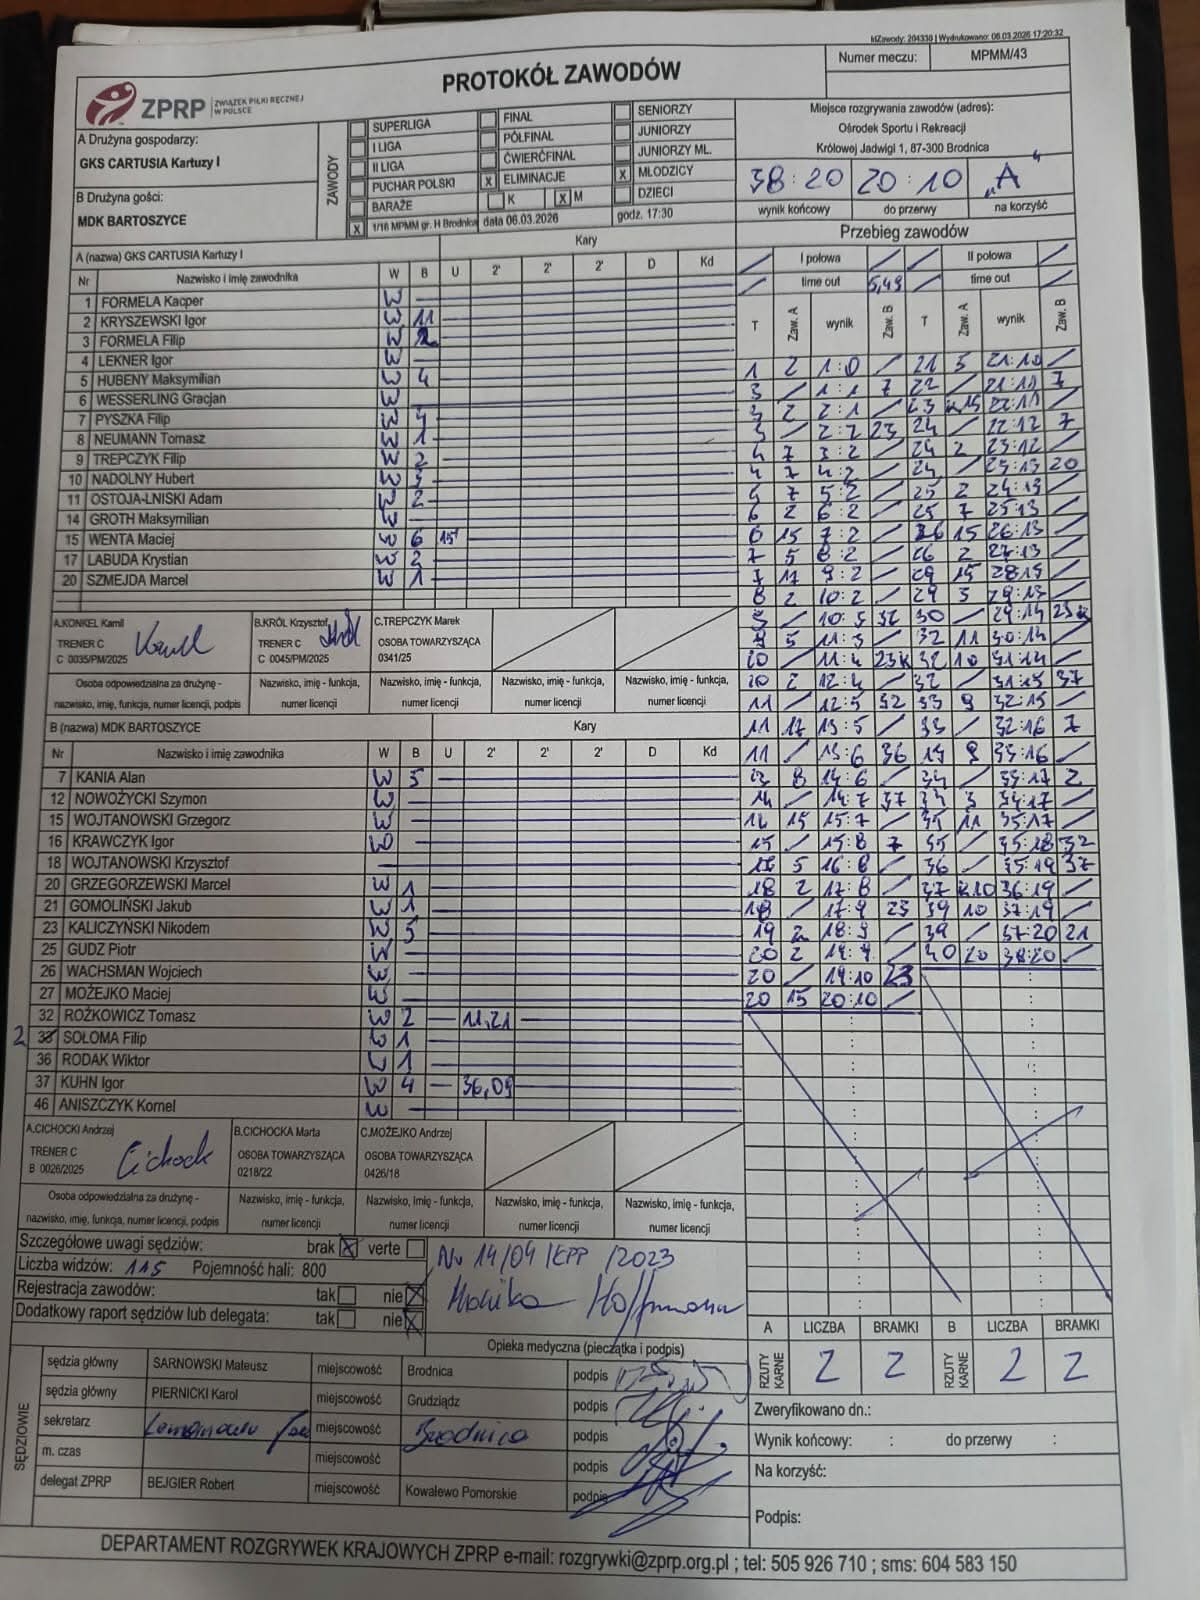 IdZawody: 204330 | Wydrukowano: 06.03.2026 17:20:32
Numer meczu: MPMM/43
PROTOKÓŁ ZAWODÓW
ZPRP ZWIĄZEK PIŁKI RĘCZNEJ W POLSCE
A Drużyna gospodarzy:
GKS CARTUSIA Kartuzy I
B Drużyna gości:
MDK BARTOSZYCE
ZAWODY
SUPERLIGA
I LIGA
II LIGA
PUCHAR POLSKI
BARAŻE
X 1/16 MPMM gr. H Brodnica
FINAŁ
PÓŁFINAŁ
ĆWIERĆFINAŁ
X ELIMINACJE
K X M
data 06.03.2026
SENIORZY
JUNIORZY
JUNIORZY MŁ.
X MŁODZICY
DZIECI
godz. 17:30
Miejsce rozgrywania zawodów (adres):
Ośrodek Sportu i Rekreacji
Królowej Jadwigi 1, 87-300 Brodnica
38:20 20:10 „A"
wynik końcowy do przerwy na korzyść
Przebieg zawodów
I połowa II połowa
time out 5,49 time out
T Zaw. A wynik Zaw. B T Zaw. A wynik Zaw. B
A (nazwa) GKS CARTUSIA Kartuzy I Kary
Nr Nazwisko i imię zawodnika W B U 2' 2' 2' D Kd
1 FORMELA Kacper W
2 KRYSZEWSKI Igor W 11
3 FORMELA Filip W
4 LEKNER Igor W
5 HUBENY Maksymilian W 4
6 WESSERLING Gracjan W
7 PYSZKA Filip W
8 NEUMANN Tomasz W 1
9 TREPCZYK Filip W 2
10 NADOLNY Hubert W 3
11 OSTOJA-LNISKI Adam W 2
14 GROTH Maksymilian W
15 WENTA Maciej W 6
17 LABUDA Krystian W 2
20 SZMEJDA Marcel W 1
A.KONKEL Kamil
TRENER C
C 0035/PM/2025
B.KRÓL Krzysztof
TRENER C
C 0045/PM/2025
C.TREPCZYK Marek
OSOBA TOWARZYSZĄCA
0341/25
Osoba odpowiedzialna za drużynę - nazwisko, imię, funkcja, numer licencji, podpis
Nazwisko, imię - funkcja, numer licencji
Nazwisko, imię - funkcja, numer licencji
Nazwisko, imię - funkcja, numer licencji
Nazwisko, imię - funkcja, numer licencji
B (nazwa) MDK BARTOSZYCE Kary
Nr Nazwisko i imię zawodnika W B U 2' 2' 2' D Kd
7 KANIA Alan W 5
12 NOWOŻYCKI Szymon W
15 WOJTANOWSKI Grzegorz W
16 KRAWCZYK Igor W
18 WOJTANOWSKI Krzysztof
20 GRZEGORZEWSKI Marcel W 1
21 GOMOLIŃSKI Jakub W 1
23 KALICZYŃSKI Nikodem W 5
25 GUDZ Piotr W
26 WACHSMAN Wojciech W
27 MOŻEJKO Maciej W
32 ROŻKOWICZ Tomasz W 2 11,21
2 SOŁOMA Filip 1
36 RODAK Wiktor W 1
37 KUHN Igor W 4 36,09
46 ANISZCZYK Kornel W
A.CICHOCKI Andrzej
TRENER C
B 0026/2025
Cichock
B.CICHOCKA Marta
OSOBA TOWARZYSZĄCA
0218/22
C.MOŻEJKO Andrzej
OSOBA TOWARZYSZĄCA
0426/18
Osoba odpowiedzialna za drużynę - nazwisko, imię, funkcja, numer licencji, podpis
Nazwisko, imię - funkcja, numer licencji
Nazwisko, imię - funkcja, numer licencji
Nazwisko, imię - funkcja, numer licencji
Nazwisko, imię - funkcja, numer licencji
1 2 1:0
1:1 7
2 2:1
2:2 23
4 7 3:2
4 7 4:2
5 7 5:2
6 2 6:2
6 15 7:2
7 5 8:2
7 9:2
8 2 10:2
9 5 11:3
10 11:4 23k
10 2 12:4
11 12:5 32
11 17 13:5
11 13:6 36
8 14:6
14 14:7 37
14 15 15:7
15 15:8 7
5 16:8
18 2 17:8
18 17:9 23
19 2 18:9
20 2 19:9
20 19:10 23
20 15 20:10
21 5 21:10
22 21:11 7
23 k15 22:11
24 22:12 7
24 2 23:12
24 23:13 20
25 2 24:13
25 7 25:13
26 15 26:13
26 2 27:13
29 15 28:13
29 3 29:13
30 29:14 23k
32 11 30:14
32 10 31:14
32 31:15 37
33 9 32:15
33 32:16 7
9 33:16
34 33:17 2
34 3 34:17
35 11 35:17
35 35:18 32
36 35:19 37
37 k10 36:19
39 10 37:19
39 37:20 21
40 20 38:20
Szczegółowe uwagi sędziów: brak X verte
Liczba widzów: 115 Pojemność hali: 800
Rejestracja zawodów: tak nie X
Dodatkowy raport sędziów lub delegata: tak nie X
Nr 14/04/KPP/2023
Monika Hoffmann
Opieka medyczna (pieczątka i podpis)
A LICZBA BRAMKI B LICZBA BRAMKI
RZUTY KARNE 2 2 RZUTY KARNE 2 2
SĘDZIOWIE
sędzia główny SARNOWSKI Mateusz miejscowość Brodnica podpis
sędzia główny PIERNICKI Karol miejscowość Grudziądz podpis
sekretarz miejscowość Brodnica podpis
m. czas miejscowość podpis
delegat ZPRP BEJGIER Robert miejscowość Kowalewo Pomorskie podpis
Zweryfikowano dn.:
Wynik końcowy: : do przerwy :
Na korzyść:
Podpis:
DEPARTAMENT ROZGRYWEK KRAJOWYCH ZPRP e-mail: rozgrywki@zprp.org.pl ; tel: 505 926 710 ; sms: 604 583 150